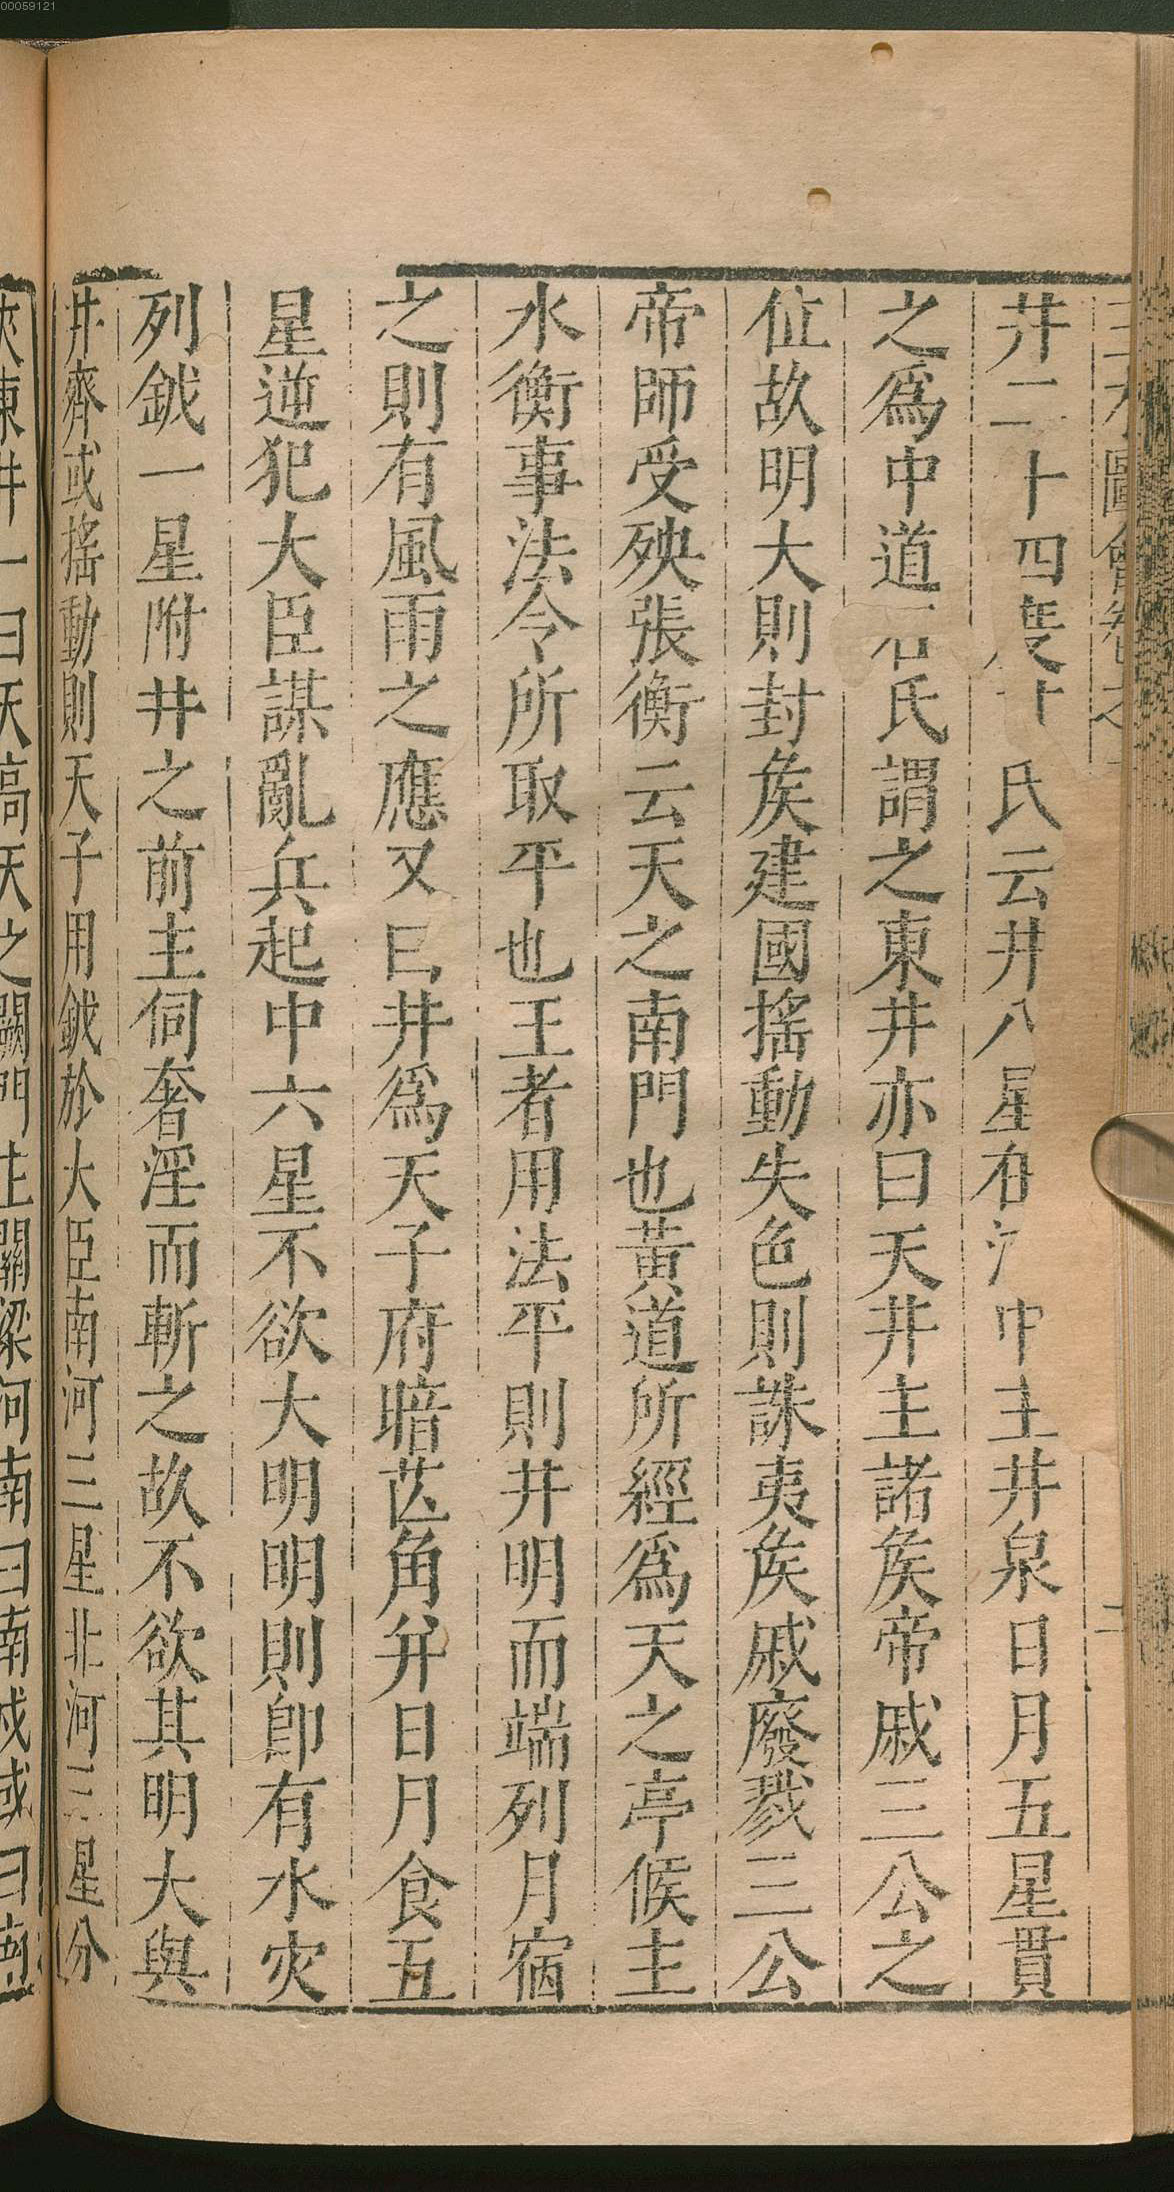 00059121
井二十四度甘氏云井八星在河中主井泉日月五星貫
之爲中道石氏謂之東井亦曰天井主諸矦帝戚三公之
位故明大則封矦建國搖動失色則誅夷矦戚廢戮三公
帝師受殃張衡云天之南門也黃道所經爲天之亭候主
水衡事法令所取平也王者用法平則井明而端列月宿
之則有風雨之應又曰井爲天子府暗芒角并日月食五
星逆犯大臣謀亂兵起中六星不欲大明明則卽有水灾
列鉞一星附井之前主伺奢淫而斬之故不欲其明大與
井齊或搖動則天子用鉞於大臣南河三星北河三星分
夾東井一曰天高天之闕門主關梁河南曰南戍或曰南